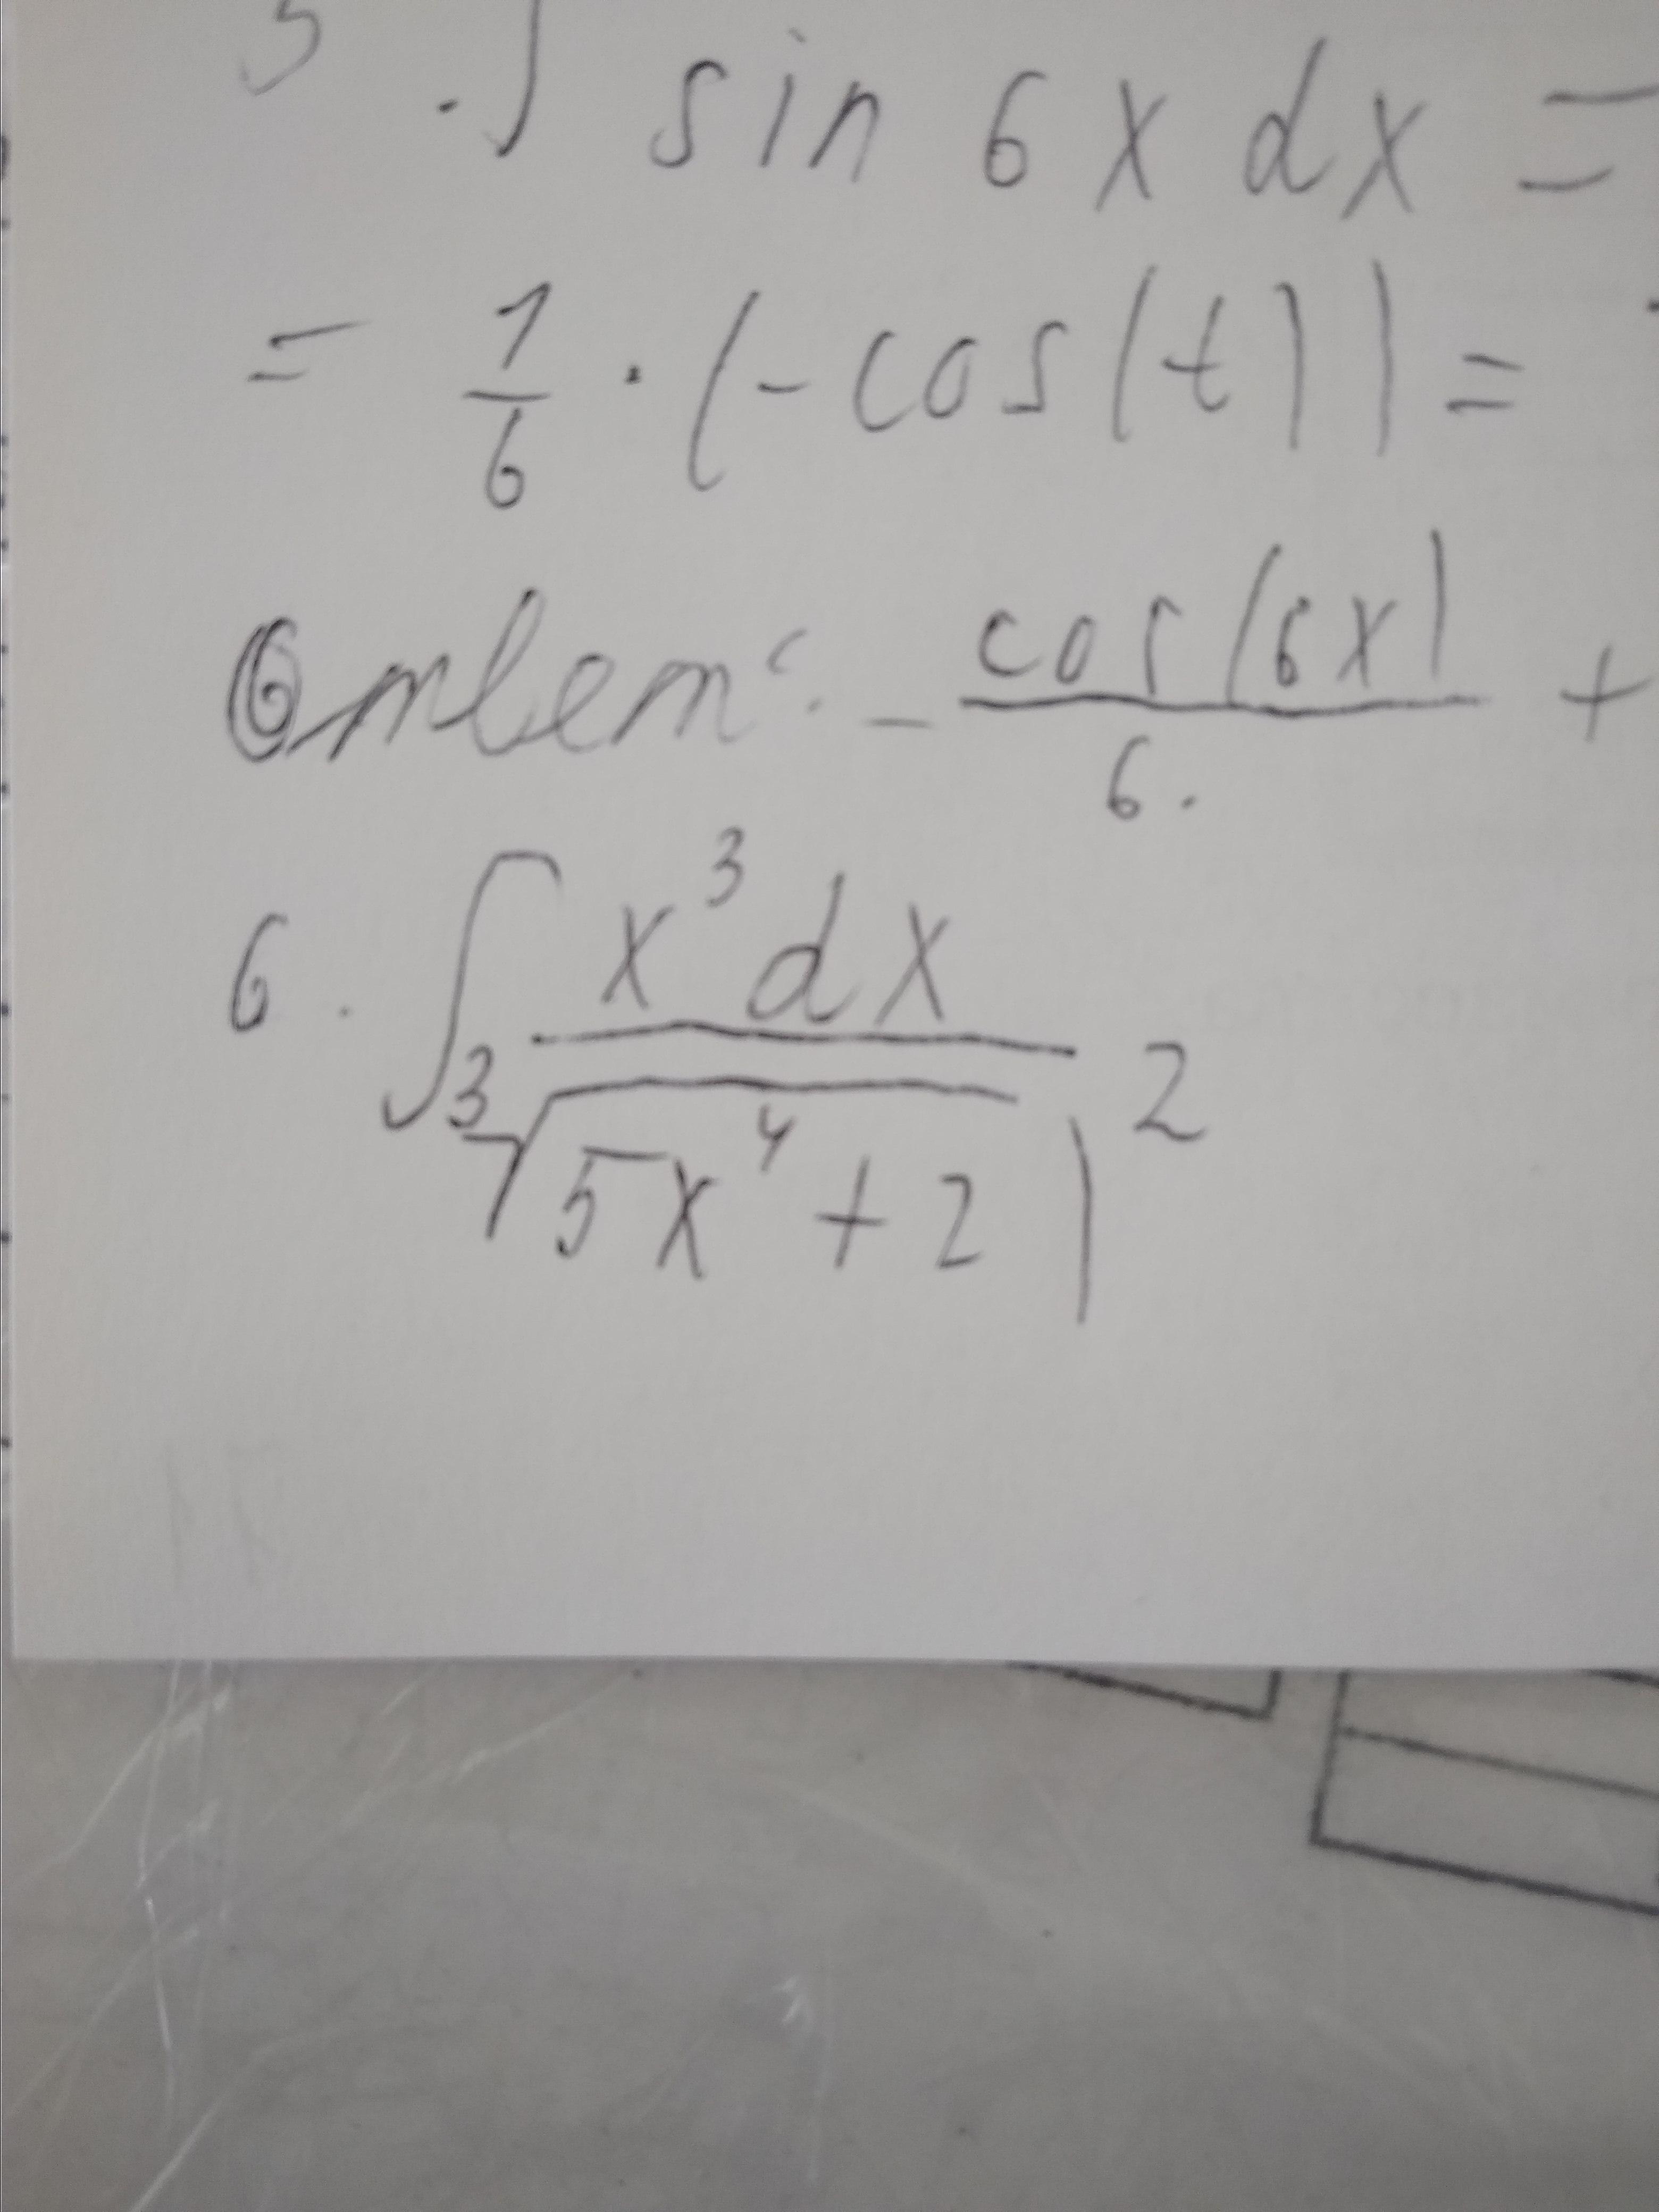 5. ∫ sin 6x dx =
= 1/6 · (-cos(t)) =
Ответ: - cos(6x)/6. +
6. ∫ x³dx / ∛(5x⁴+2)²